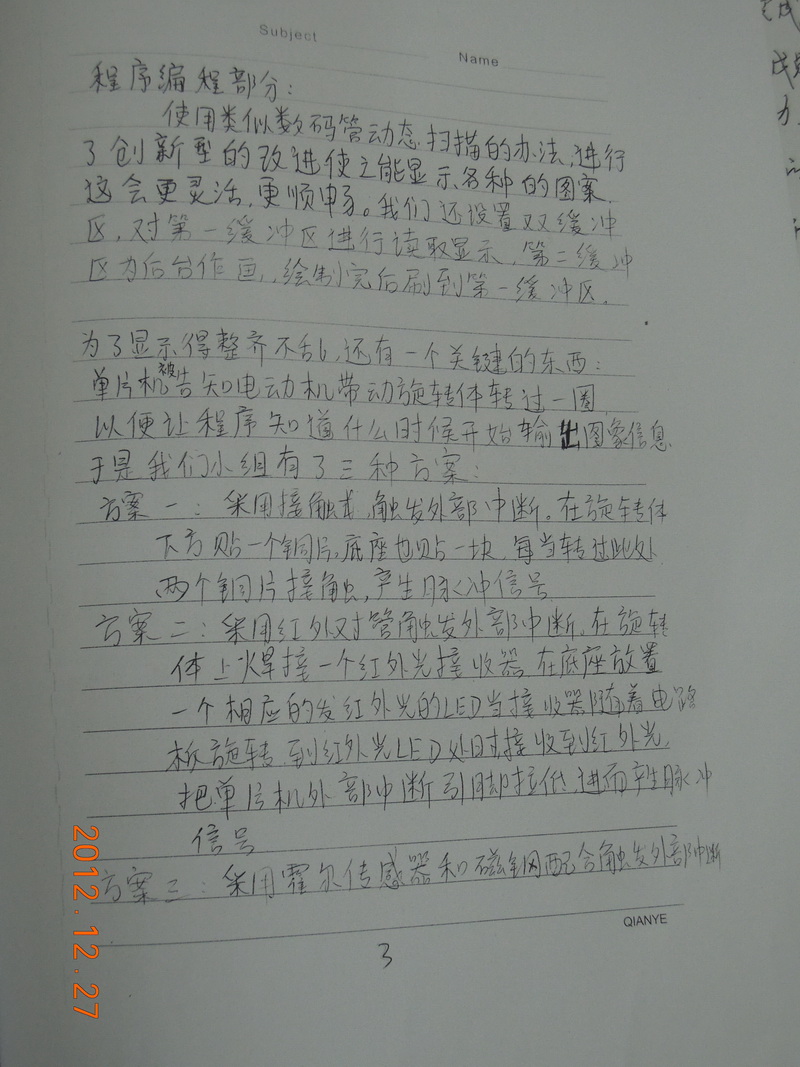 Subject
Name
程序编程部分：
使用类似数码管动态扫描的办法，进行
了创新型的改进使之能显示各种的图案，
这会更灵活，更顺申易。我们还设置双缓冲
区，对第一缓冲区进行读取显示，第二缓冲
区为后台作画，绘制完后刷到第一缓冲区。
为了显示得整齐不乱，还有一个关键的东西：
单片机被告知电动机带动旋转体转过一圈
以便让程序知道什么时候开始输出图象信息
于是我们小组有了三种方案：
方案一：采用接触式，触发外部中断。在旋转体
下方贴一个铜片，底座也贴一块，每当转过此处
两个铜片接触，产生脉冲信号
方案二：采用红外对管触发外部中断，在旋转
体上焊接一个红外光接收器，在底座放置
一个相应的发红外光的LED当接收器随着电路
板旋转，到红外光LED处时，接收到红外光，
把单片机外部中断引脚拉低，进而产生脉冲
信号
方案三：采用霍尔传感器和磁钢配合触发外部中断
QIANYE
3
2012.12.27